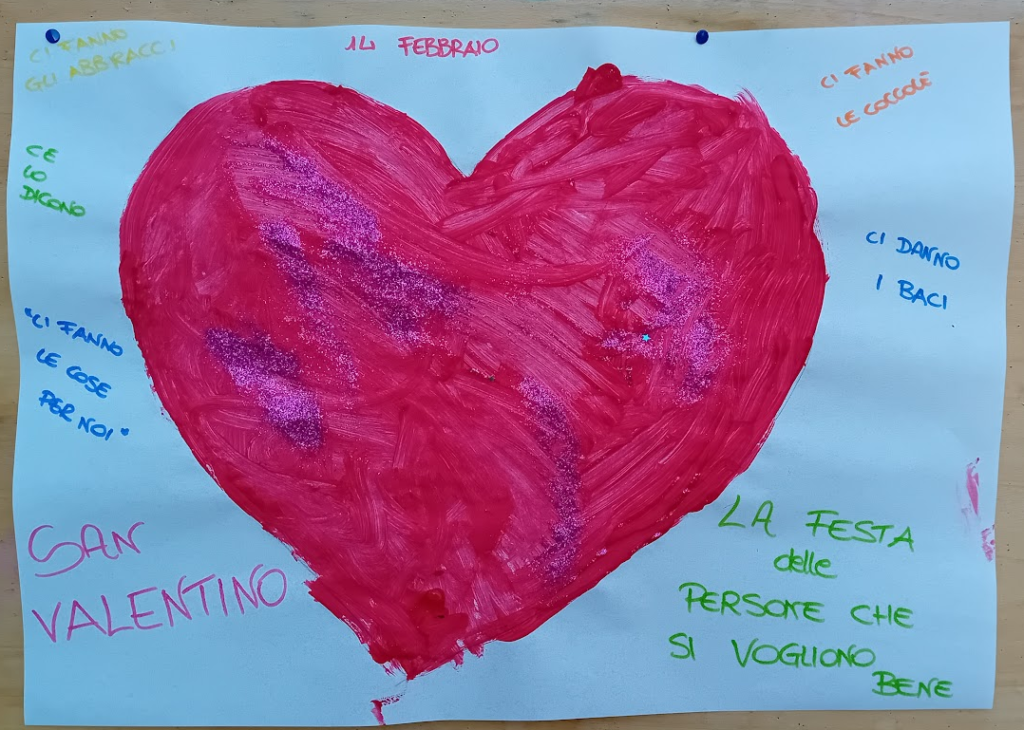 CI FANNO
GLI ABBRACCI
14 FEBBRAIO
CI FANNO
LE COCCOLE
CE
LO
DICONO
CI DANNO
I BACI
"CI FANNO
LE COSE
PER NOI"
SAN
VALENTINO
LA FESTA
delle
PERSONE CHE
SI VOGLIONO
BENE